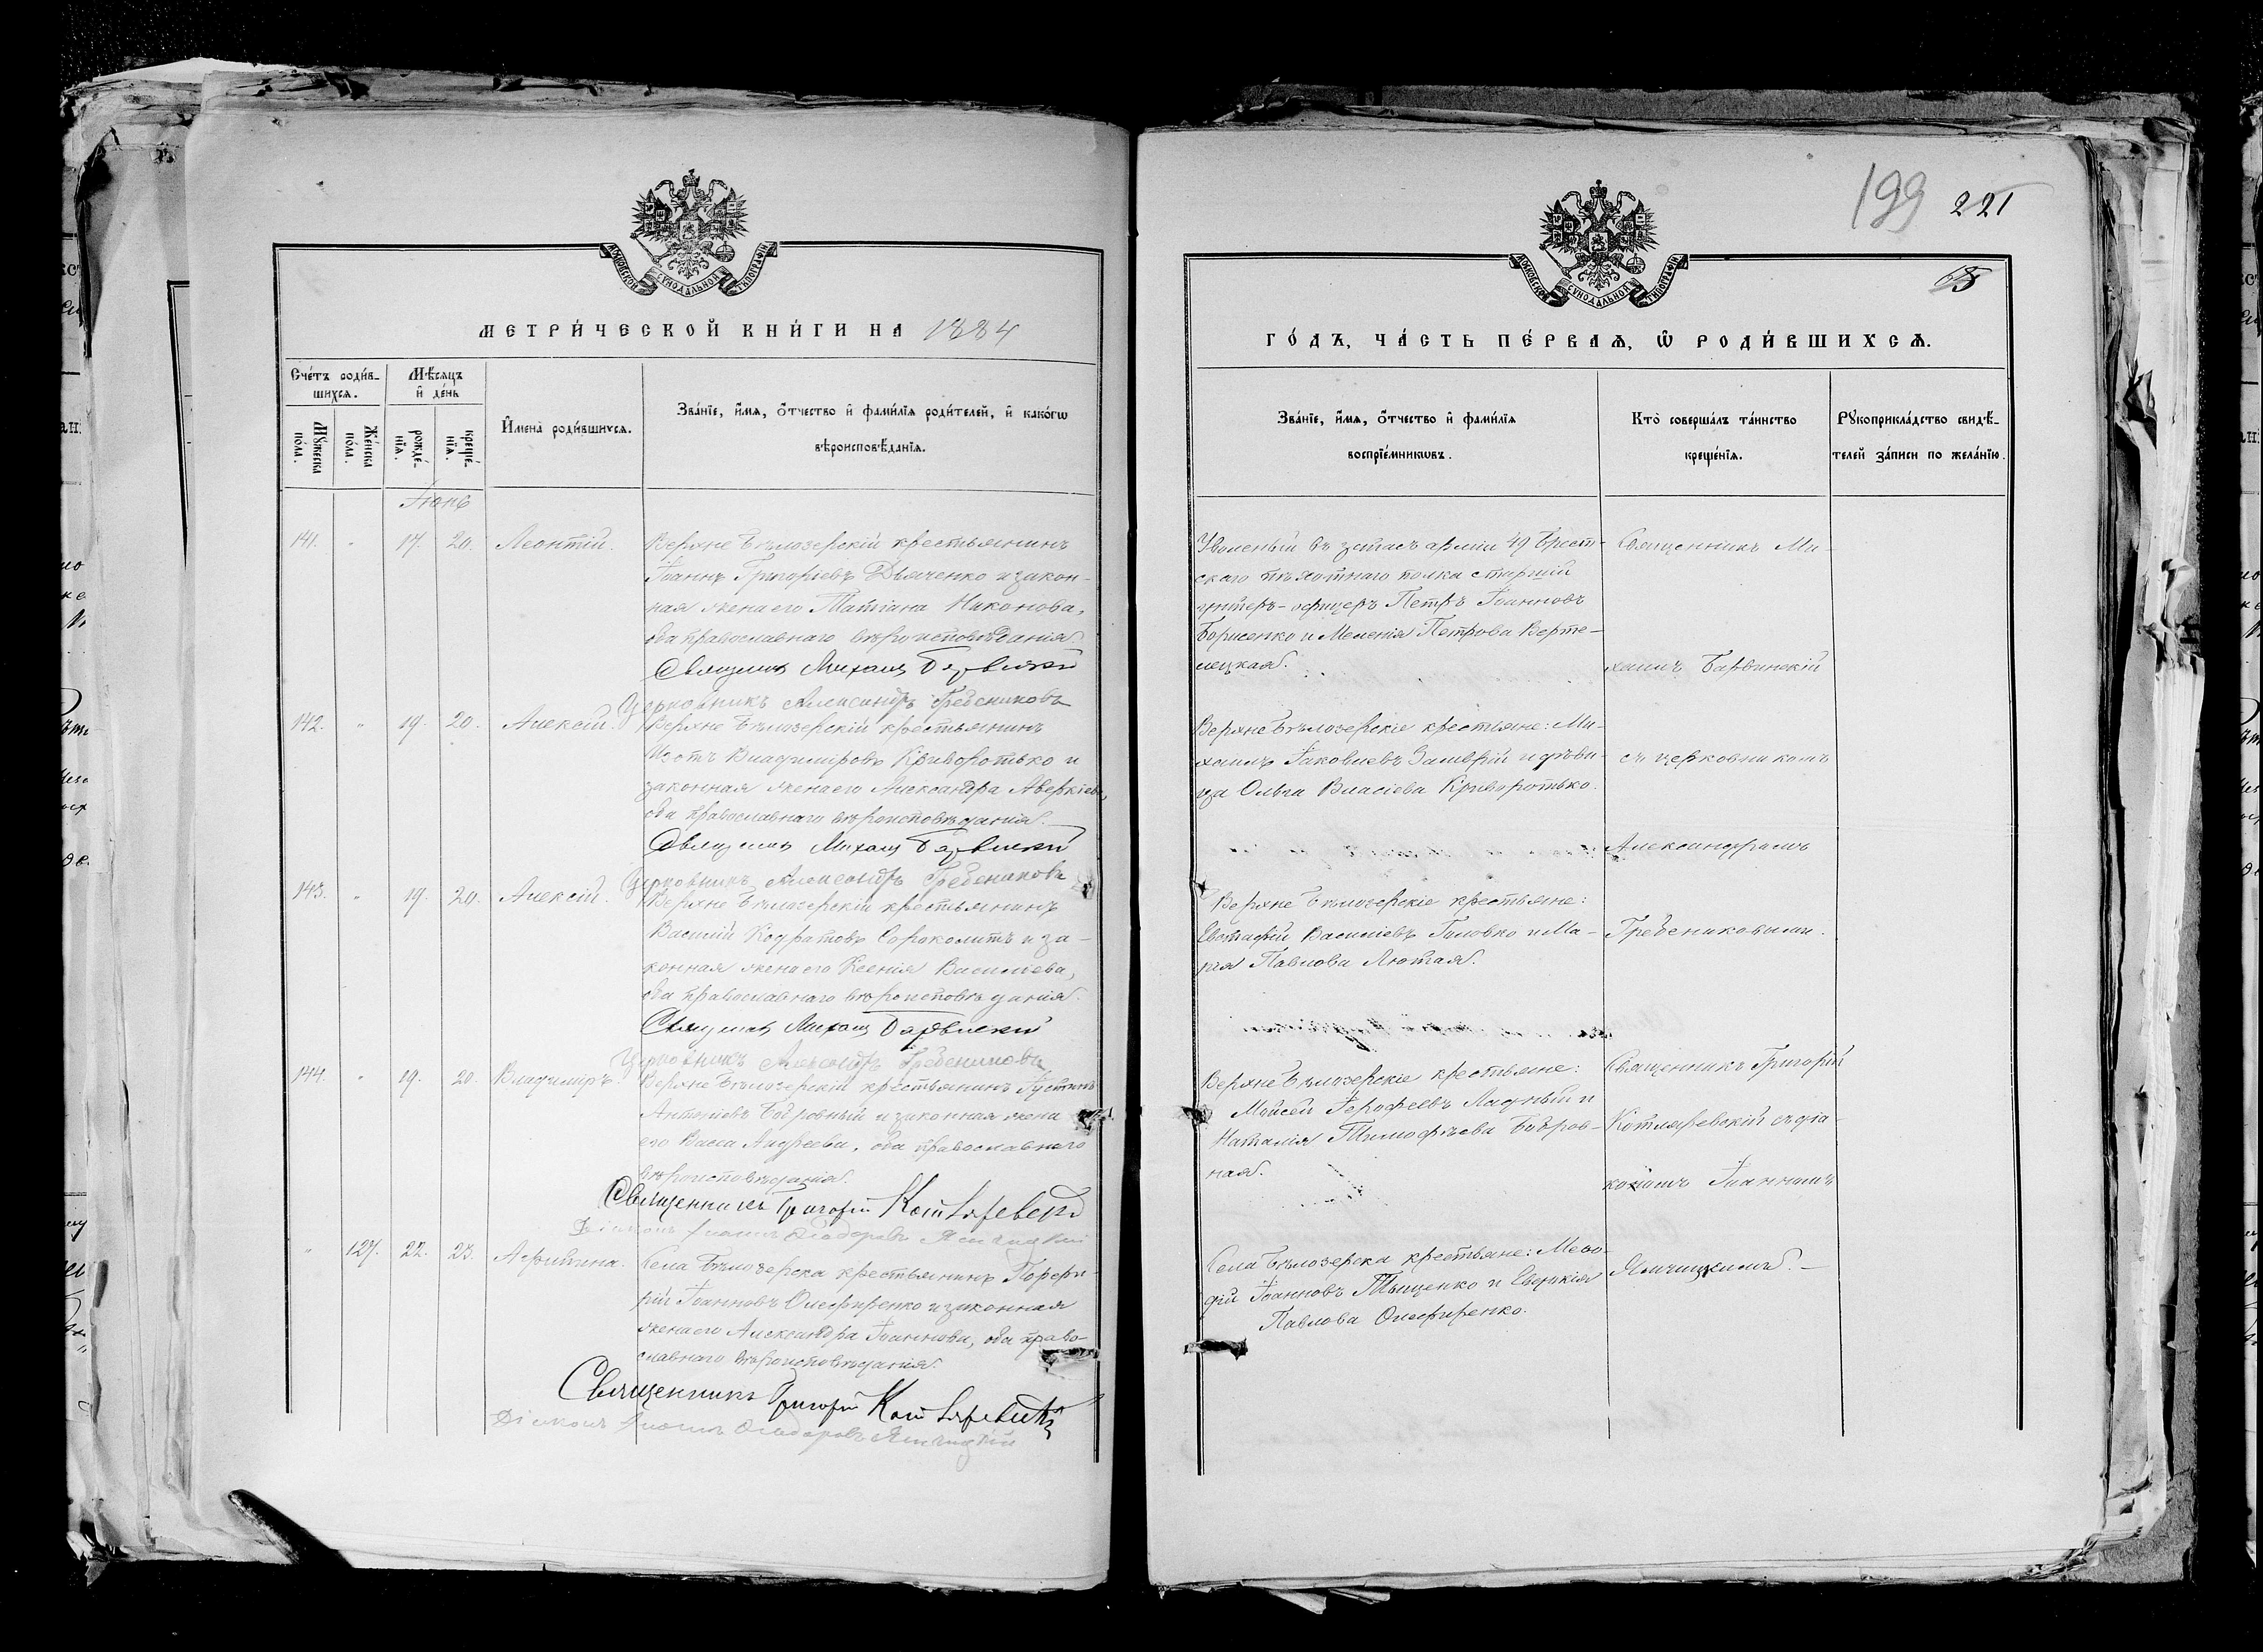 МОСКОВСКОЙ СѴНОДАЛЬНОЙ ТИПОГРАФІИ
МЕТРИ́ЧЕСКОЙ КНИ́ГИ НА 1884
Сче́тъ роди́в-
шихсѧ.
Мѣ́сѧцъ
и҆ де́нь
И҆мена̀ роди́вшихсѧ.
Зва́нїе, и҆́мѧ, ѻ҆́тчество и҆ фами́лїѧ роди́телей, и҆ како́гѡ
вѣроисповѣ́данїѧ.
Мꙋ́жеска
пола.
Же́нска
по́ла.
рожде́-
нїѧ.
креще́-
нїѧ.
Іюнь
141. " 17. 20. Леонтій.
Верхне Бѣлозерскій крестьянинъ
Іоаннъ Григорьевъ Дьяченко и закон-
ная жена его Татіана Никонова,
оба православнаго вѣроисповѣданія
Священникъ Михаилъ Барвинскій
Церковникъ Александръ Гребениковъ
142. " 19. 20. Алексій.
Верхне Бѣлозерскій крестьянинъ
Изотъ Владиміровъ Криворотько и
законная жена его Александра Аверкіева,
оба православнаго вѣроисповѣданія.
Священникъ Михаилъ Барвинскій
Церковникъ Александръ Гребениковъ
143. " 19. 20. Алексій.
Верхне Бѣлозерскій крестьянинъ
Василій Кодратовъ Сороколитъ и за-
конная жена его Ксенія Васильева,
оба православнаго вѣроисповѣданія.
Священникъ Михаилъ Барвинскій
Церковникъ Александръ Гребениковъ
144. " 19. 20. Владиміръ.
Верхне Бѣлозерскій крестьянинъ Іустинъ
Антоніевъ Бобровный и законная жена
его Васса Андреева, оба православнаго
вѣроисповѣданія.
Священникъ Григорій Котляревскій
Діаконъ Іоаннъ Ѳеодоровъ Ямчицкій
" 127. 22. 23. Афинина.
Села Бѣлозерска крестьянинъ Порфи-
рій Іоанновъ Олефиренко и законная
жена его Александра Іоаннова, оба право-
славнаго вѣроисповѣданія.
Священникъ Григорій Котляревскій
Діаконъ Іоаннъ Ѳеодоровъ Ямчицкій
199 221
65
МОСКОВСКОЙ СѴНОДАЛЬНОЙ ТИПОГРАФІИ
ГО́ДЪ, ЧА́СТЬ ПЕ́РВАѦ, Ѡ҆ РОДИ́ВШИХСѦ.
Зва́нїе, и҆́мѧ, ѻ҆́тчество и҆ фами́лїѧ
воспрїе́мникѡвъ.
Кто̀ соверша́лъ та́инство
креще́нїѧ.
Рꙋкоприкла́дство свидѣ́-
телей за́писи по жела́нїю.
Уволеный въ запасъ арміи 49 Брест-
скаго пѣхотнаго полка старшій
унтеръ-офицеръ Петръ Іоанновъ
Борисенко и Меленія Петрова Верте-
лецкая.
Священникъ Ми-
хаилъ Барвинскій
Верхне Бѣлозерскіе крестьяне: Ми-
хаилъ Іаковлевъ и дѣви-
ца Ольга Власіева Криворотько.
съ церковникомъ
Александромъ
Верхне Бѣлозерскіе крестьяне:
Евстафій Васильевъ Головко и Ма-
рія Павлова Лютая.
Гребениковымъ.
Верхне Бѣлозерскіе крестьяне:
Мойсей Іерофеевъ Ладный и
Наталія Тимофѣева Бобров-
ная.
Священникъ Григорій
Котляревскій съ діа-
кономъ Іоанномъ
Села Бѣлозерска крестьяне: Меѳо-
дій Іоанновъ Тыщенко и Евдокія
Павлова Олефиренко.
Ямчицкимъ. —